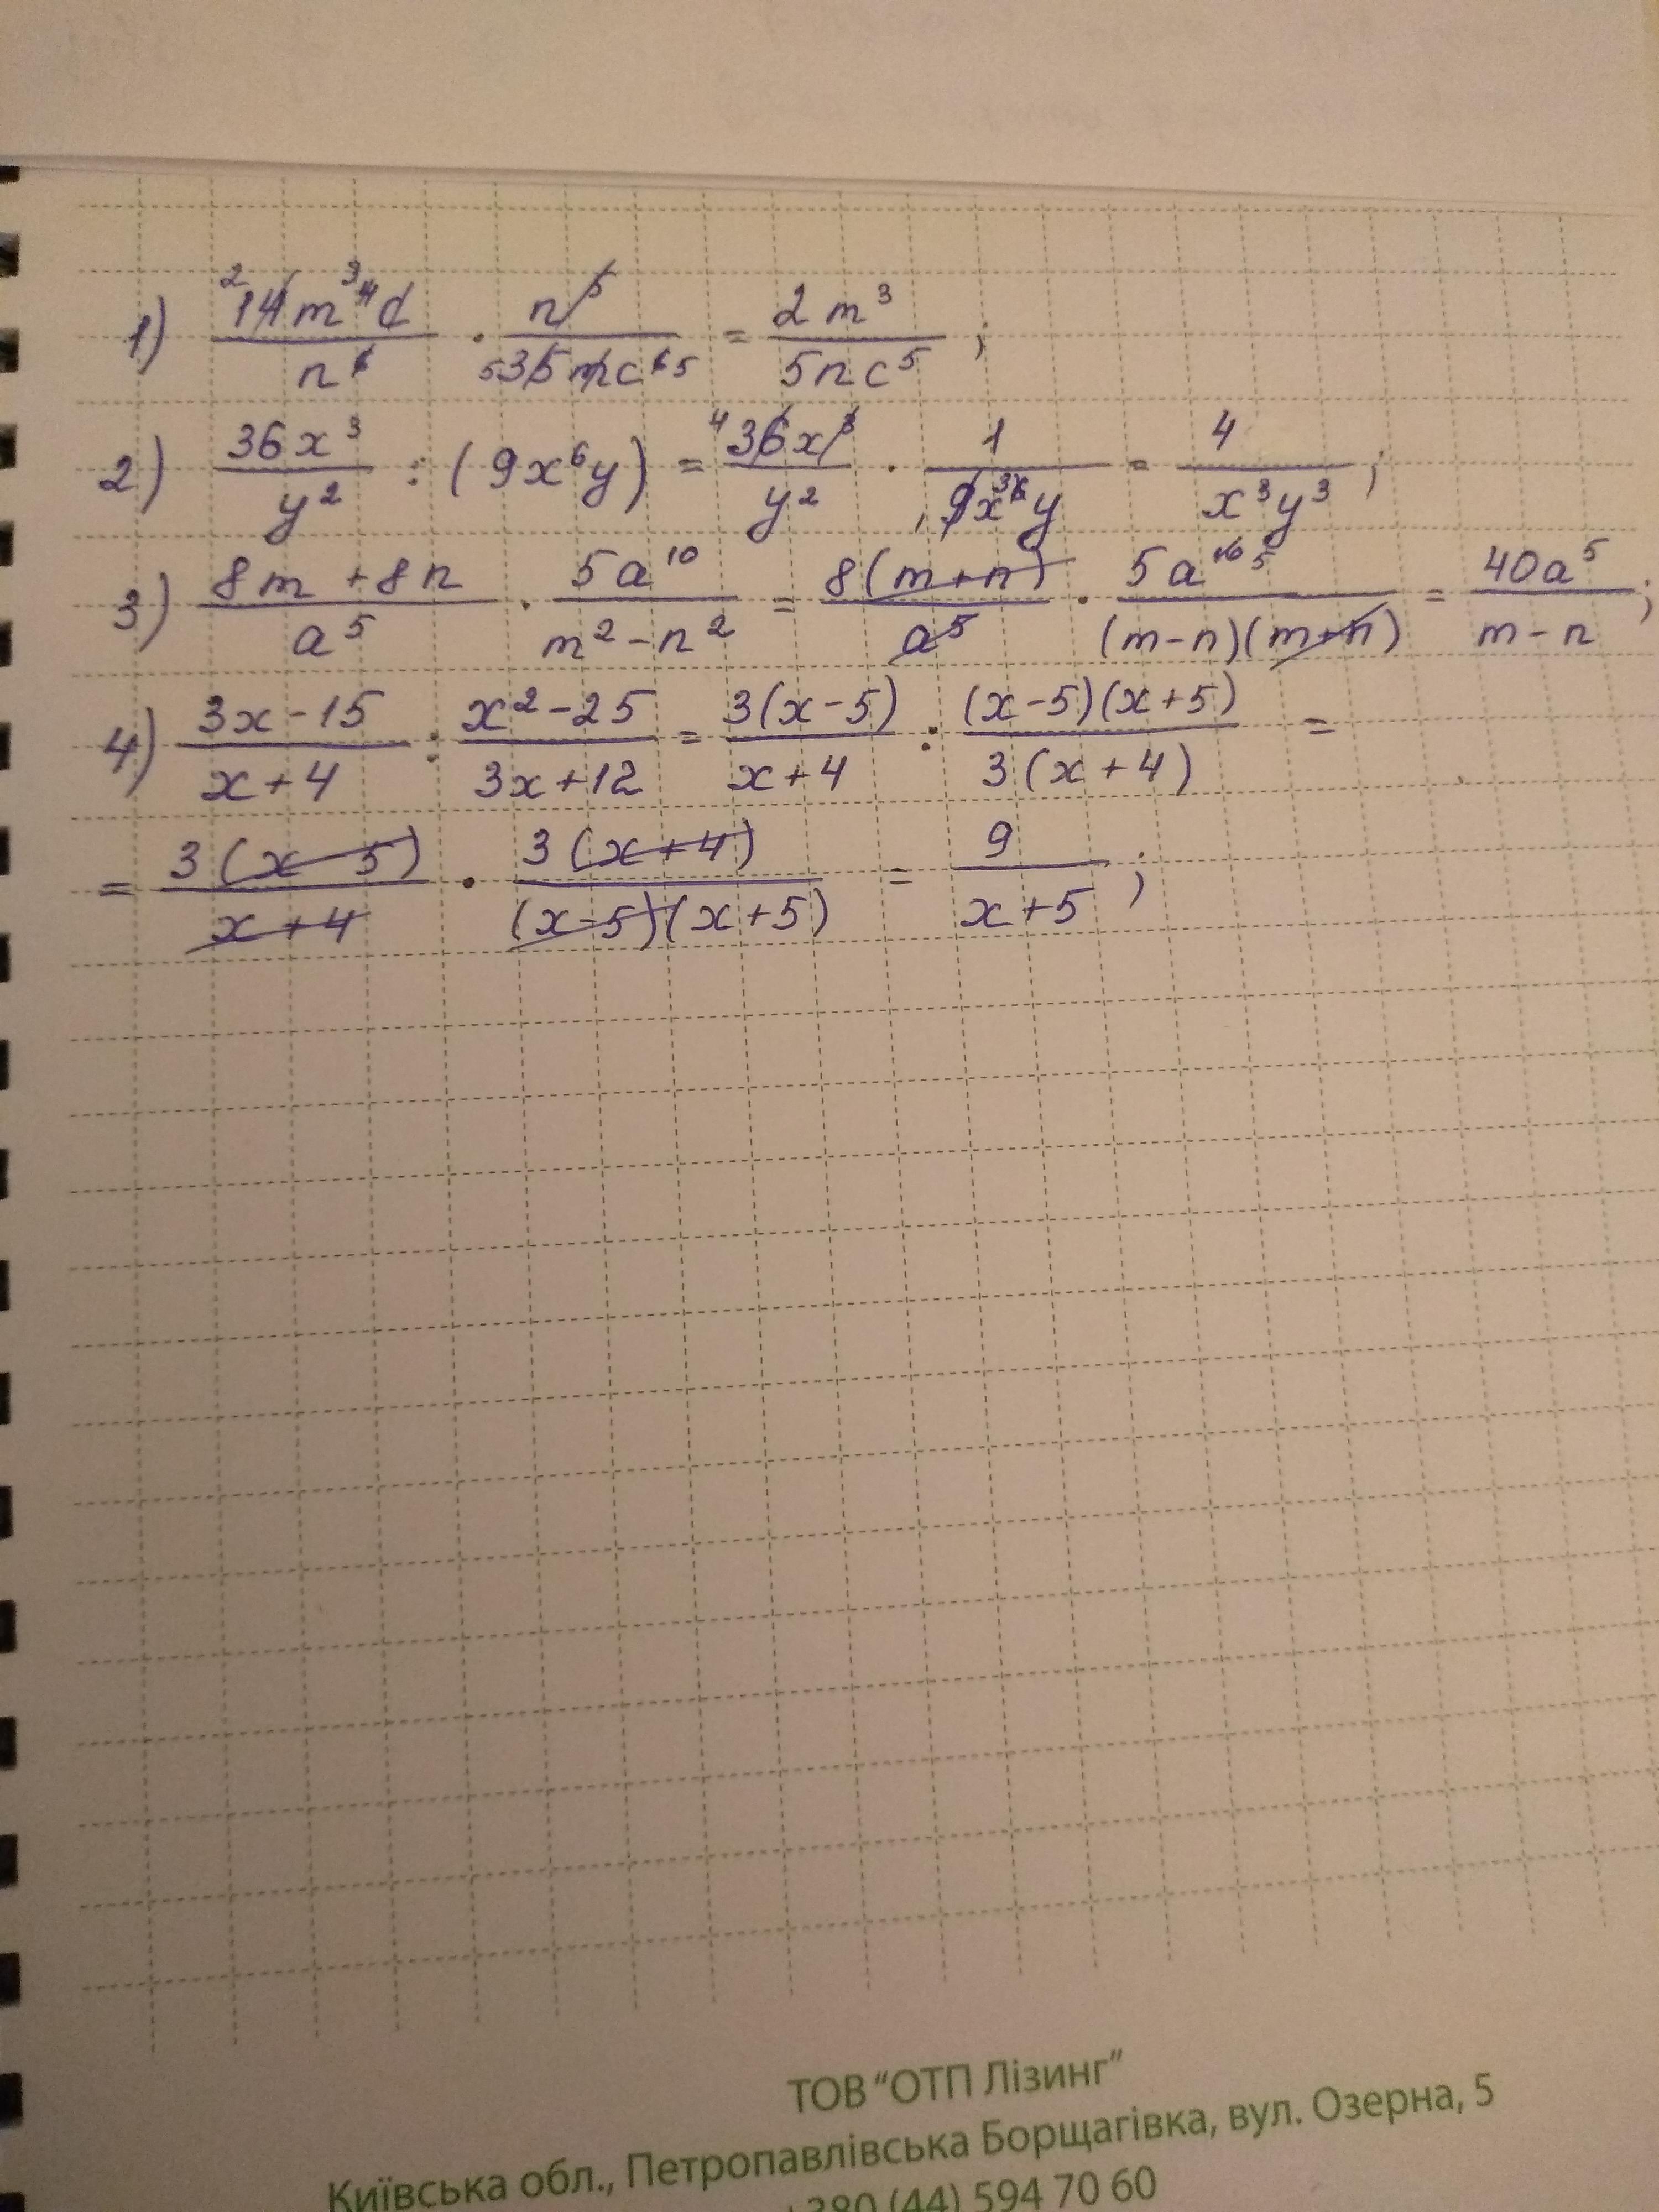 1) 14m⁴c/n⁶ · n⁵/35mc⁶ = 2m³/5nc⁵;
2) 36x³/y² : (9x⁶y) = 36x³/y² · 1/9x⁶y = 4/x³y³;
3) 8m+8n/a⁵ · 5a¹⁰/m²-n² = 8(m+n)/a⁵ · 5a¹⁰/(m-n)(m+n) = 40a⁵/m-n;
4) 3x-15/x+4 : x²-25/3x+12 = 3(x-5)/x+4 : (x-5)(x+5)/3(x+4) =
= 3(x-5)/x+4 · 3(x+4)/(x-5)(x+5) = 9/x+5;
ТОВ "ОТП Лізинг"
Київська обл., Петропавлівська Борщагівка, вул. Озерна, 5
+380 (44) 594 70 60